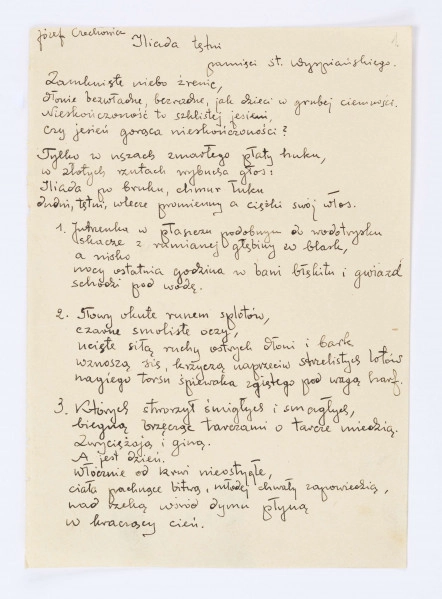 Józef Czechowicz
Iliada tętni
pamięci St. Wyspiańskiego.
Zamknięte niebo źrenic,
dłonie bezwładne, bezradne, jak dzieci w grubej ciemności.
Nieskończoność to szklistej jesieni,
czy jesień gorąca nieskończoności?
Tylko w uszach zmarłego płaty huku,
w złotych rzutach wybucha głos:
Iliada po bruku, chmur łuku
dudni, tętni, wlecze promienny a ciężki swój włos.
1. Jutrzenka w płaszczu podobnym do wodotrysku
skacze z rumianej głębiny w blask,
a nisko
nocy ostatnia godzina w bani błękitu i gwiazd
schodzi pod wodę.
2. Głowy okute runem splotów,
czarne smoliste oczy,
ucięte siłą ruchy ostrych dłoni i bark
wznoszą się, krzyczą naprzeciw strzelistych lotów
nagiego torsu śpiewaka zgiętego pod wagą harf.
3. Których stworzył śmigłych i smagłych,
biegną brzęcząc tarczami o tarcze miedzią.
Zwyciężają i giną.
A jest dzień.
Włócznie od krwi nieostygłe,
ciała pachnące bitwą, młodej chwały zapowiedzią,
nad rzeką wśród dymu płyną
w kraczący cień.